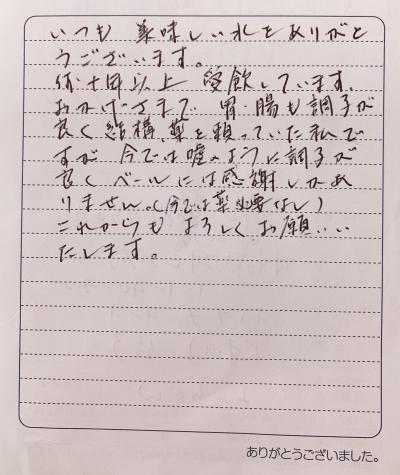 いつも 美味しい水をありがと
うございます。
何十年以上 愛飲しています。
おかげさまで 胃・腸も調子が
良く 結構、薬を頼っていた私で
すが 今では嘘のように調子が
良く ベールには感謝しかあ
りません。(今では薬必要なし)
これからも よろしくお願いい
たします。
ありがとうございました。